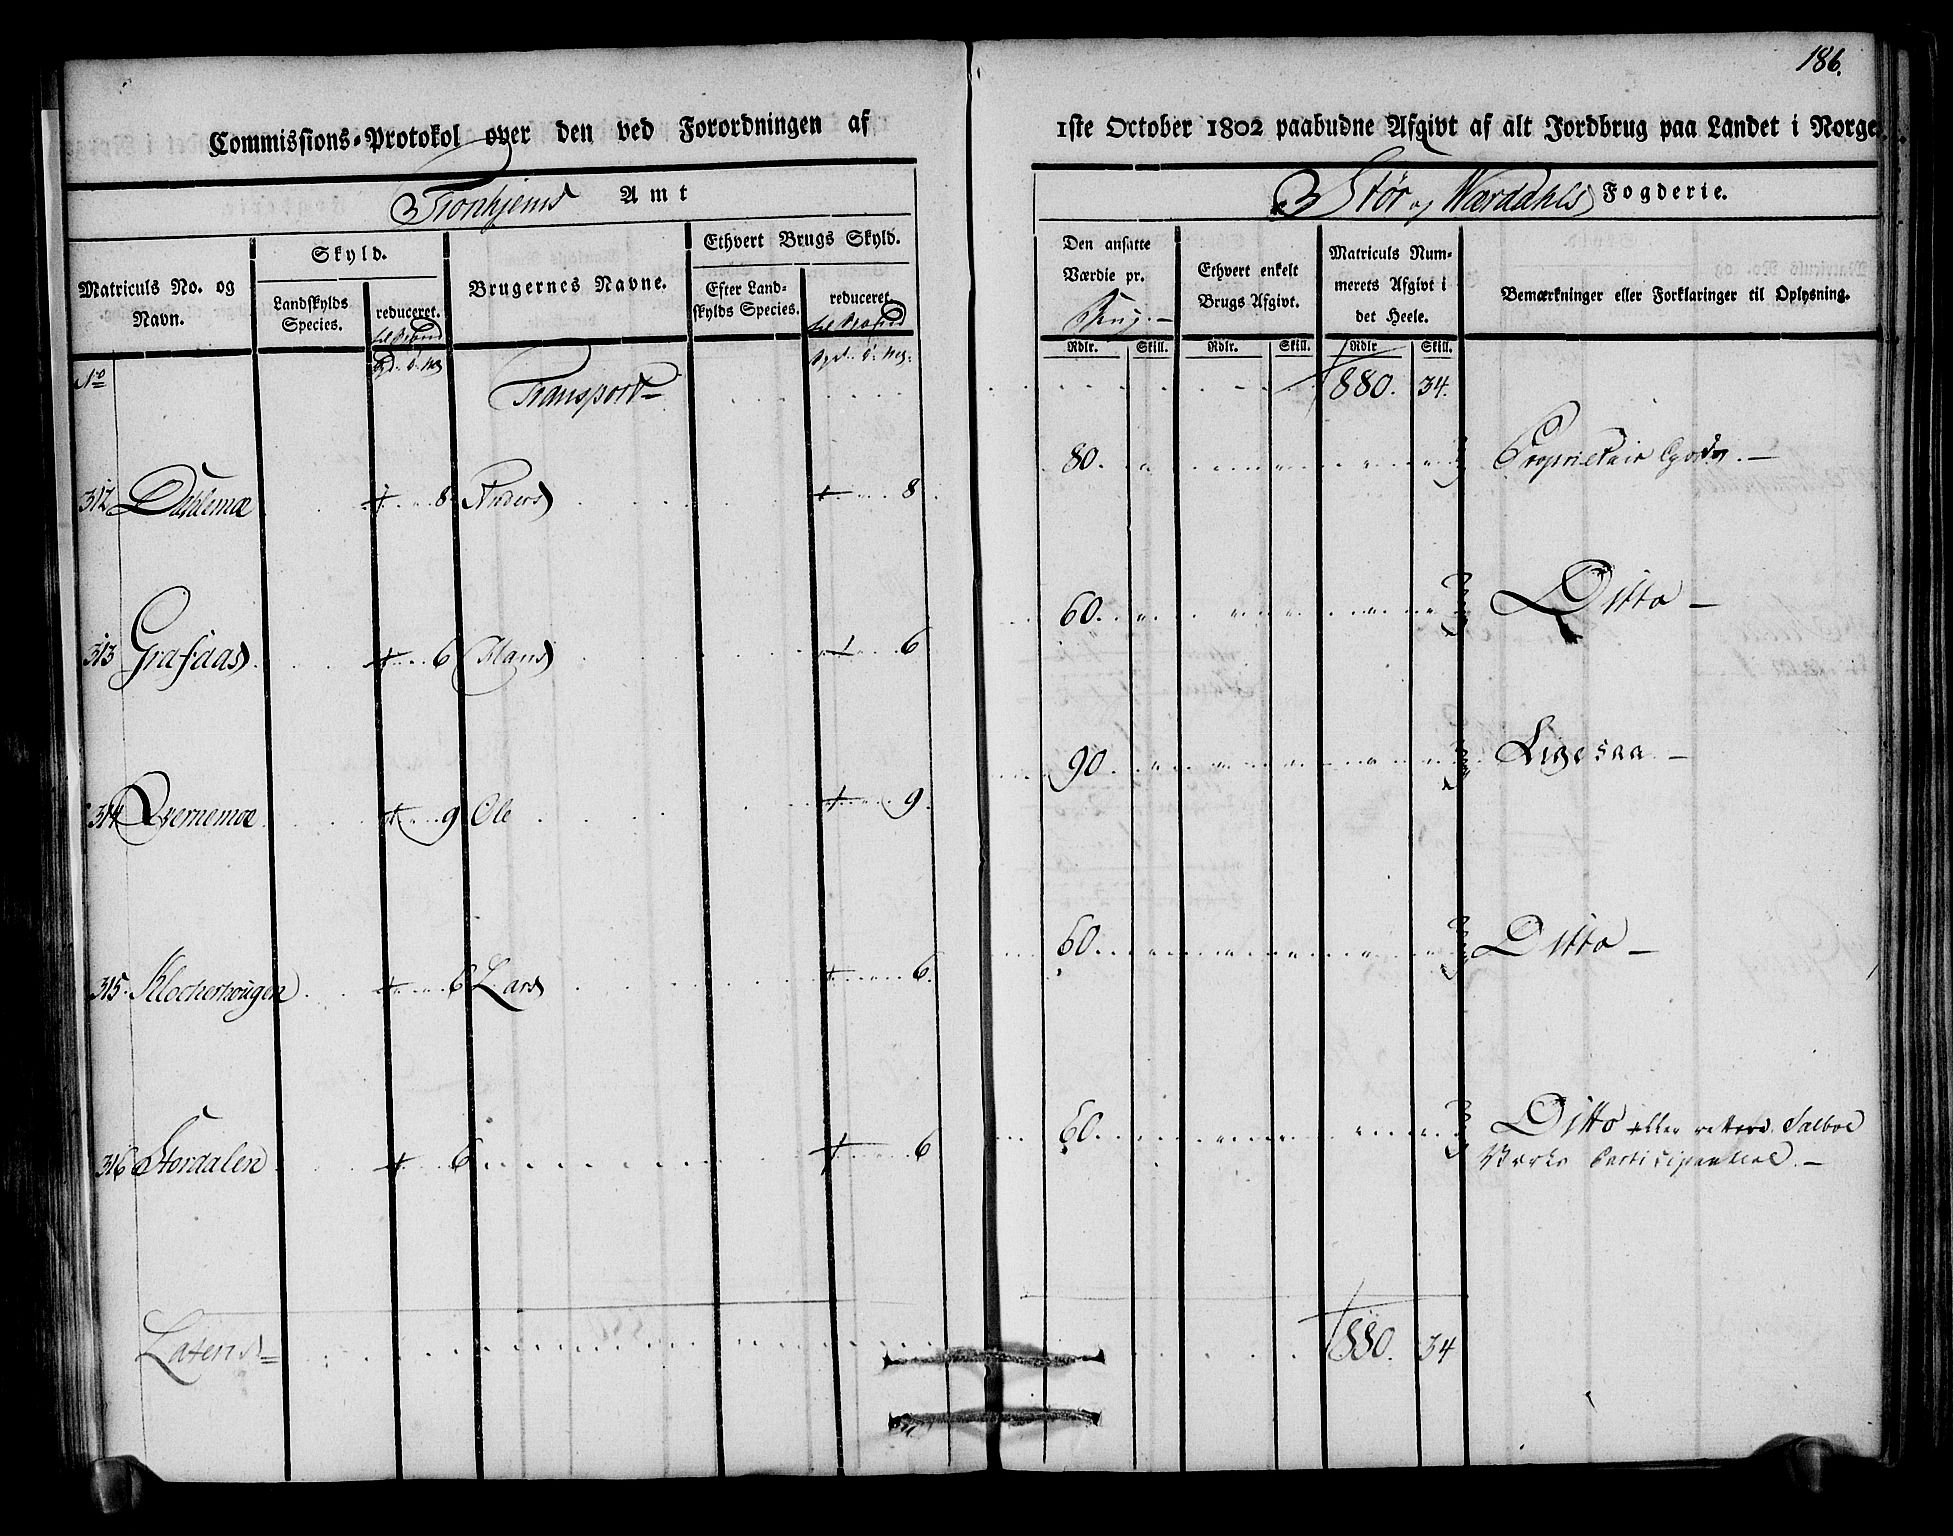 186.
Commissions-Protokol over den ved Forordningen af 1ste October 1802 paabudne Afgivt af alt Jordbrug paa Landet i Norge.
Tronhjems Amt
Stør og Værdahls Fogderie.
Matriculs No. og Navn.
Skyld.
Landskylds Species.
reduceret.
Brugernes Navne.
Ethvert Brugs Skyld.
Efter Landskylds Species.
reduceret.
Den ansatte Værdie pr. Brug.
Ethvert enkelt Brugs Afgivt.
Matriculs Nummerets Afgivt i det Heele.
Bemærkninger eller Forklaringer til Oplysning.
Rdlr. Skill. Rdlr. Skill. Rdlr Skill.
No
Transport 1880. 34.
312 Dahlemoe 8 Anders 8. 80. Proprietair Gods. —
313 Grafaas 6 Hans 6 60. Ditto —
314 Qvernemoe 9 Ole 9. 90. Ligesaa —
315. Klocherhougen 6 Lars 6. 60. Ditto —
316 Stordalen 6 6 60. Ditto eller Salboe
Værks Participanterne. —
Lateris 1880. 34